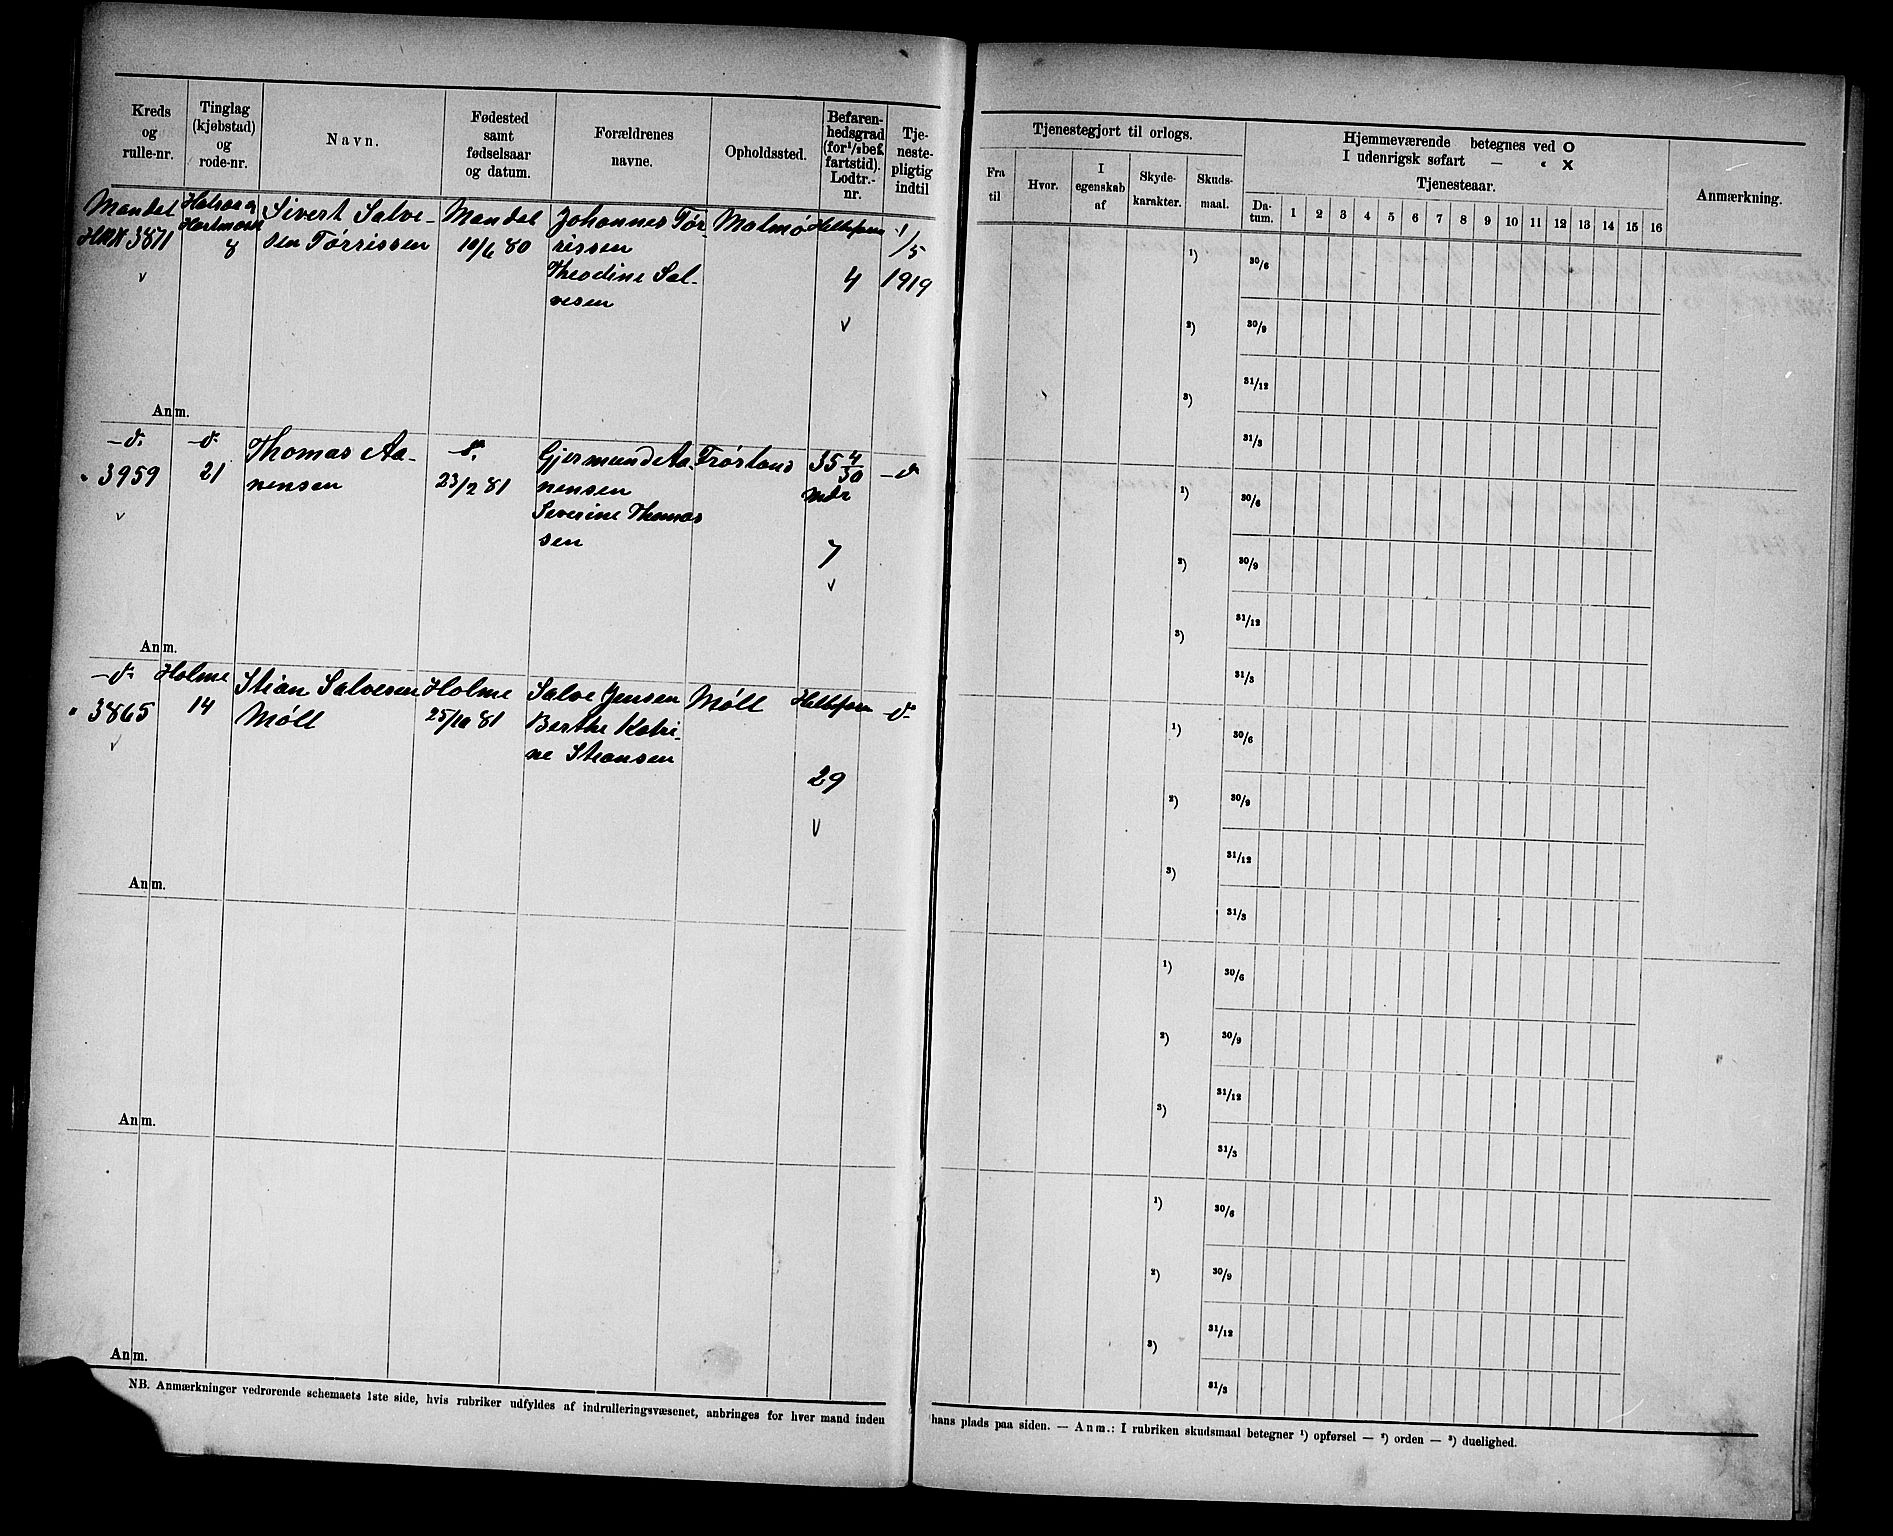 Kreds
og
rulle-nr.
Tinglag
(kjøbstad)
og
rode-nr.
Navn.
Fødested
samt
fødselsaar
og datum.
Forældrenes
navne.
Opholdssted.
Befaren-
hedsgrad
(for 1/2 bef.
fartstid).
Lodtr.-
nr.
Tje-
neste-
pligtig
indtil
Mandal
3871
v
Halsaa og
Hartmark
8
Sivert Salve-
sen Tørrissen
Mandal
10/6 80
Johannes Tør-
rissen
Theodine Sal-
vesen
Malmø
Helbefaren
4
v
1/5
1919
Anm.
-d-
" 3959
v
-d-
21
Thomas Aa-
nensen
-d-
23/2 81
Gjermund Aa-
nensen
Severine Thomas
sen
Frøsland
35 4/30
Mdr
7
v
-d-
Anm.
-d-
" 3865
v
Holme
14
Stian Salvesen
Møll
Holme
25/10 81
Salve Jensen
Berthe Katri-
ne Stiansen
Møll
Helbefaren
29
v
-d-
Anm.
Anm.
Anm.
NB. Anmærkninger vedrørende schemaets 1ste side, hvis rubriker udfyldes af indrulleringsvæsenet, anbringes for hver mand inden
Tjenestegjort til orlogs.
Fra
til
Hvor.
I
egenskab
af
Skyde-
karakter.
Skuds-
maal.
Hjemmeværende betegnes ved O
I udenrigsk søfart — " X
Tjenesteaar.
Da-
tum. 1 2 3 4 5 6 7 8 9 10 11 12 13 14 15 16
Anmærkning.
1) 30/6
2) 30/9
31/12
3)
31/3
1) 30/6
2) 30/9
31/12
3)
31/3
1) 30/6
2) 30/9
31/12
3)
31/3
1) 30/6
2) 30/9
31/12
3)
31/3
1) 30/6
2) 30/9
31/12
3)
31/3
hans plads paa siden. — Anm.: I rubriken skudsmaal betegner 1) opførsel — 2) orden — 3) duelighed.